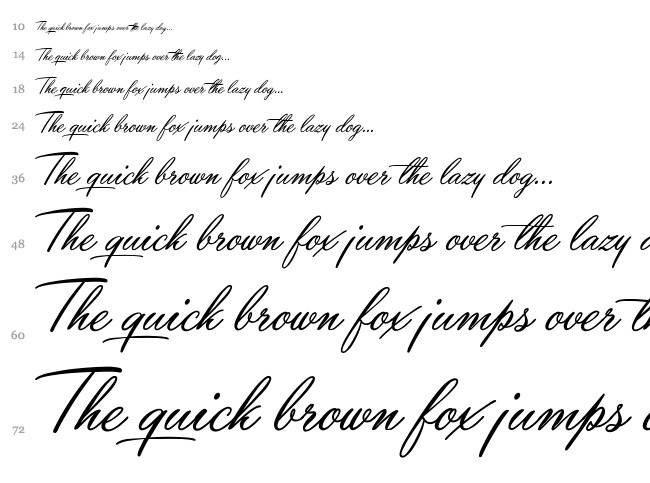 10 The quick brown fox jumps over the lazy dog...
14 The quick brown fox jumps over the lazy dog...
18 The quick brown fox jumps over the lazy dog...
24 The quick brown fox jumps over the lazy dog...
36 The quick brown fox jumps over the lazy dog...
48 The quick brown fox jumps over the lazy d
60 The quick brown fox jumps over th
72 The quick brown fox jumps o